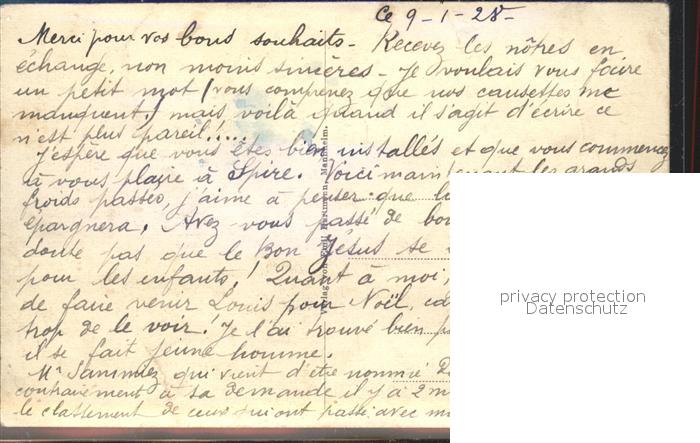 Ce 9-1-28-
Merci pour vos bons souhaits - Recevez les nôtres en
échange, non moins sincères - Je voulais vous faire
un petit mot (vous comprenez que nos causettes me
manquent) mais voilà quand il s'agit d'écrire ce
n'est plus pareil!....
J'espère que vous êtes bien installés et que vous commencez
à vous plaire à Spire. Voici maintenant les grands
froids passés, j'aime à penser que
épargnera. Avez vous passé de
doute pas que le Bon Jésus se
pour les enfants! Quant à moi,
de faire venir Louis pour Noël,
trop de le voir. Je l'ai trouvé bien
il se fait jeune homme.
Mr qui vient d'être nommé
contrairement à sa demande il y a 2
le classement de ceux qui ont passé avec
Verlag von Mannheim.
privacy protection
Datenschutz